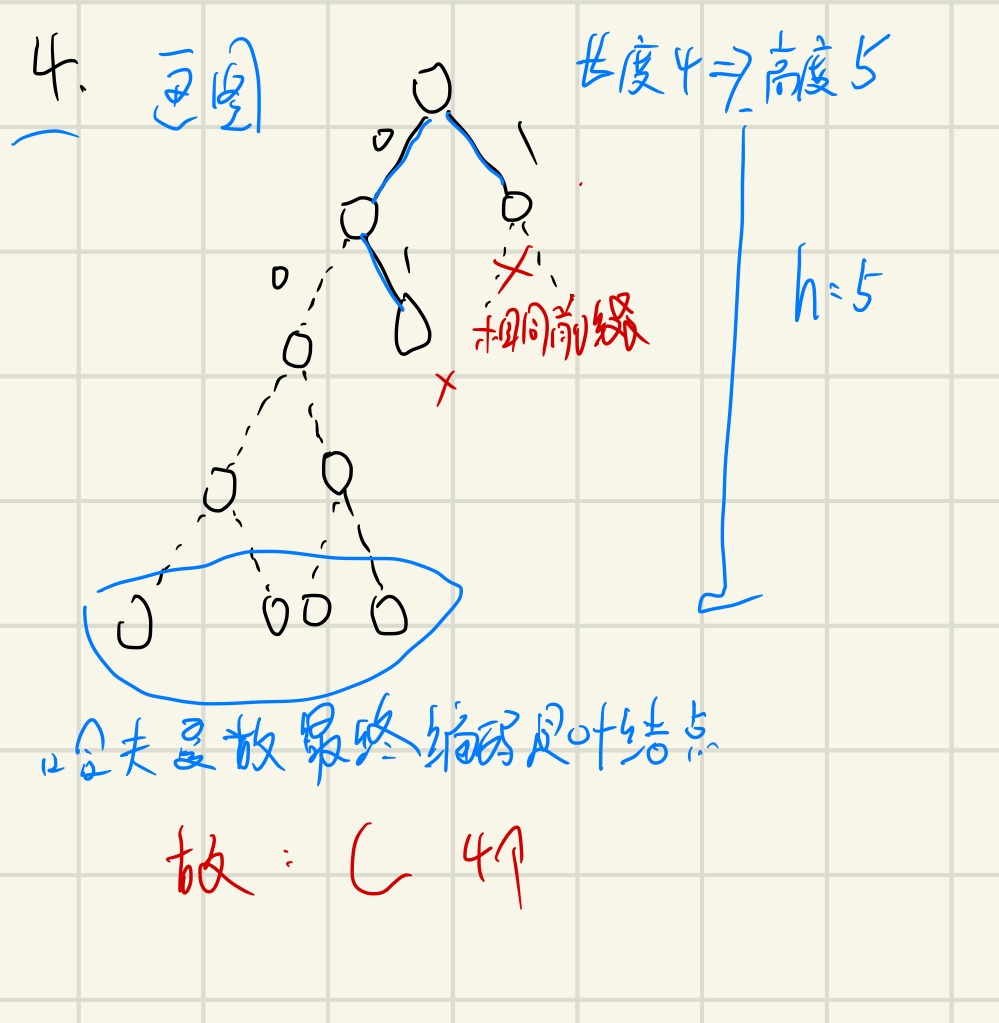 4. 画图
长度4⇒高度5
0 1
0 1
h=5
相同前缀
哈夫曼故最终编码是叶结点
故: C 4个